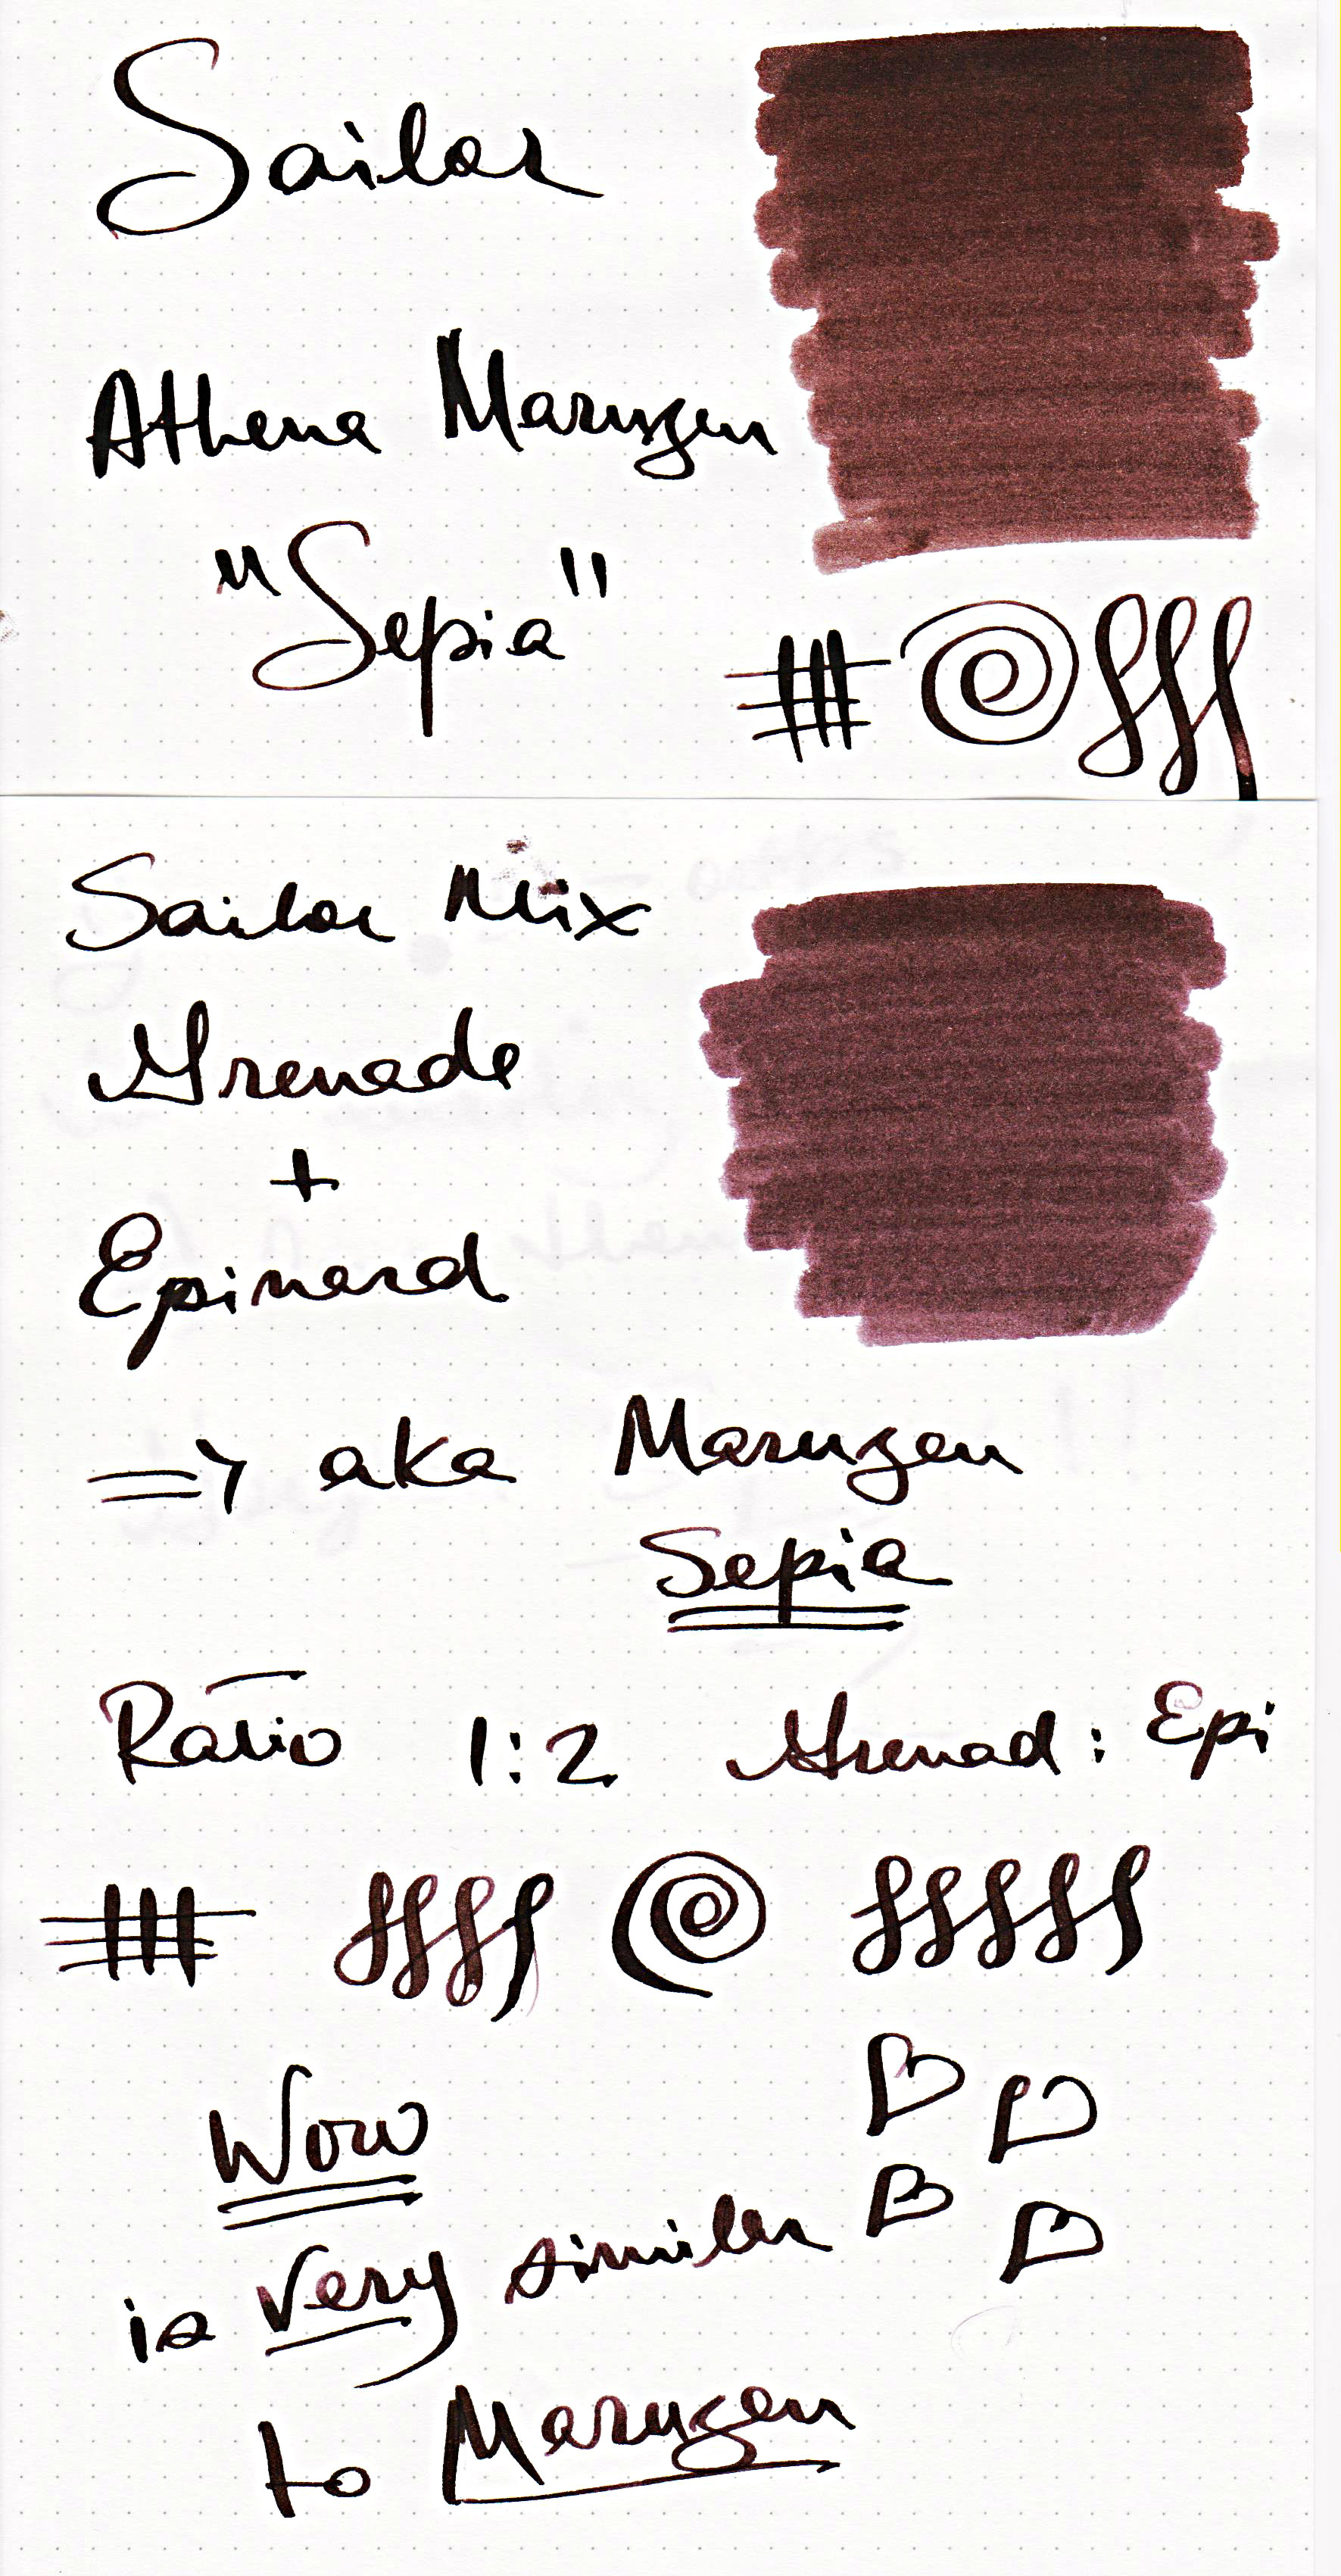 Sailor
Athena Maruzen
"Sepia"
Sailor Mix
Grenade
+
Epinard
=> aka Maruzen
Sepia
Ratio 1:2 Grenad : Epi
Wow
is very similar
to Maruzen